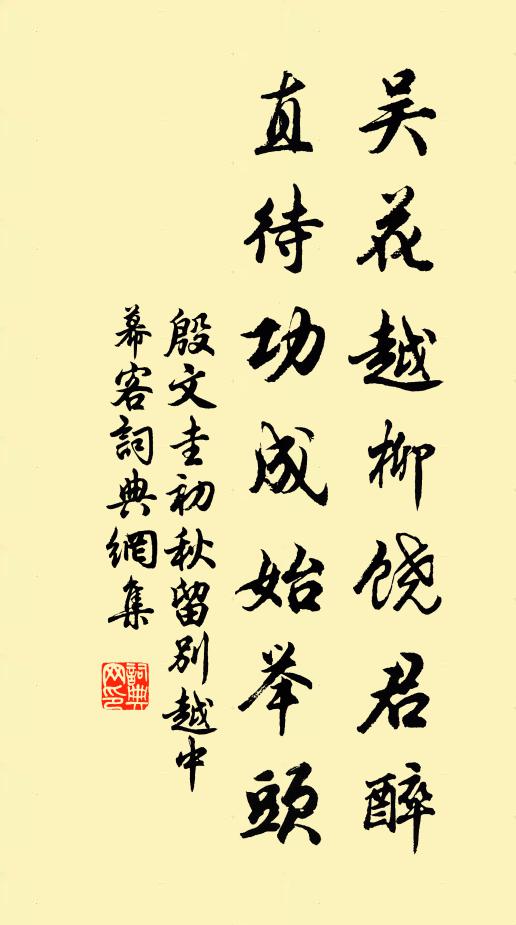 吴花越柳饶君醉
直待功成始举頭
殷文圭初秋留别越中
幕客詞典網集
詞典
网印